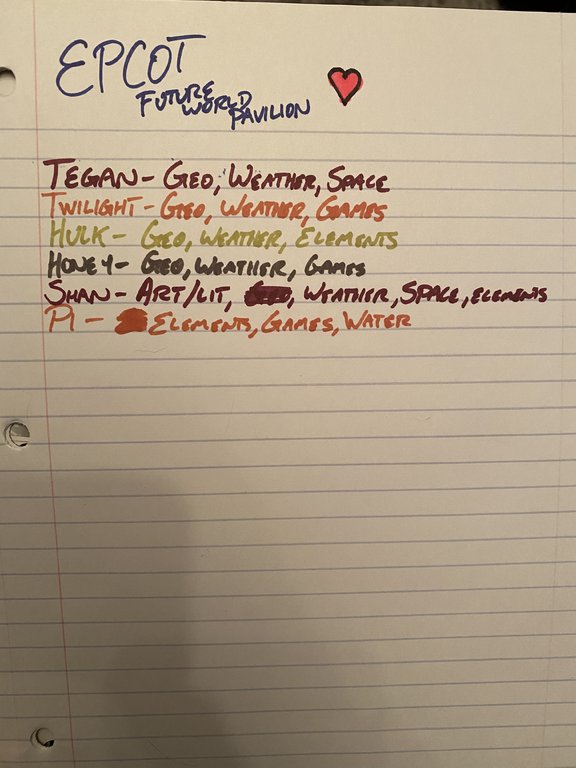 EPCOT
FUTURE
WORLD
PAVILION
TEGAN - GEO, WEATHER, SPACE
TWILIGHT - GEO, WEATHER, GAMES
HULK - GEO, WEATHER, ELEMENTS
HONEY - GEO, WEATHER, GAMES
SHAN - ART/LIT, , WEATHER, SPACE, ELEMENTS
PI - ELEMENTS, GAMES, WATER